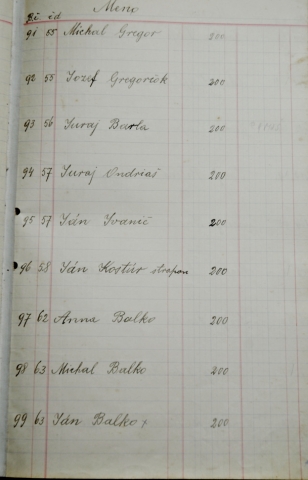 Meno
čč čd
91 55 Michal Gregor 200
92 55 Jozef Gregorčok 200
93 56 Juraj Barla 200
94 57 Juraj Ondriaš 200
95 57 Ján Ivanič 200
96 58 Ján Kostúr strapon 200
97 62 Anna Balko 200
98 63 Michal Balko 200
99 63 Ján Balko + 200